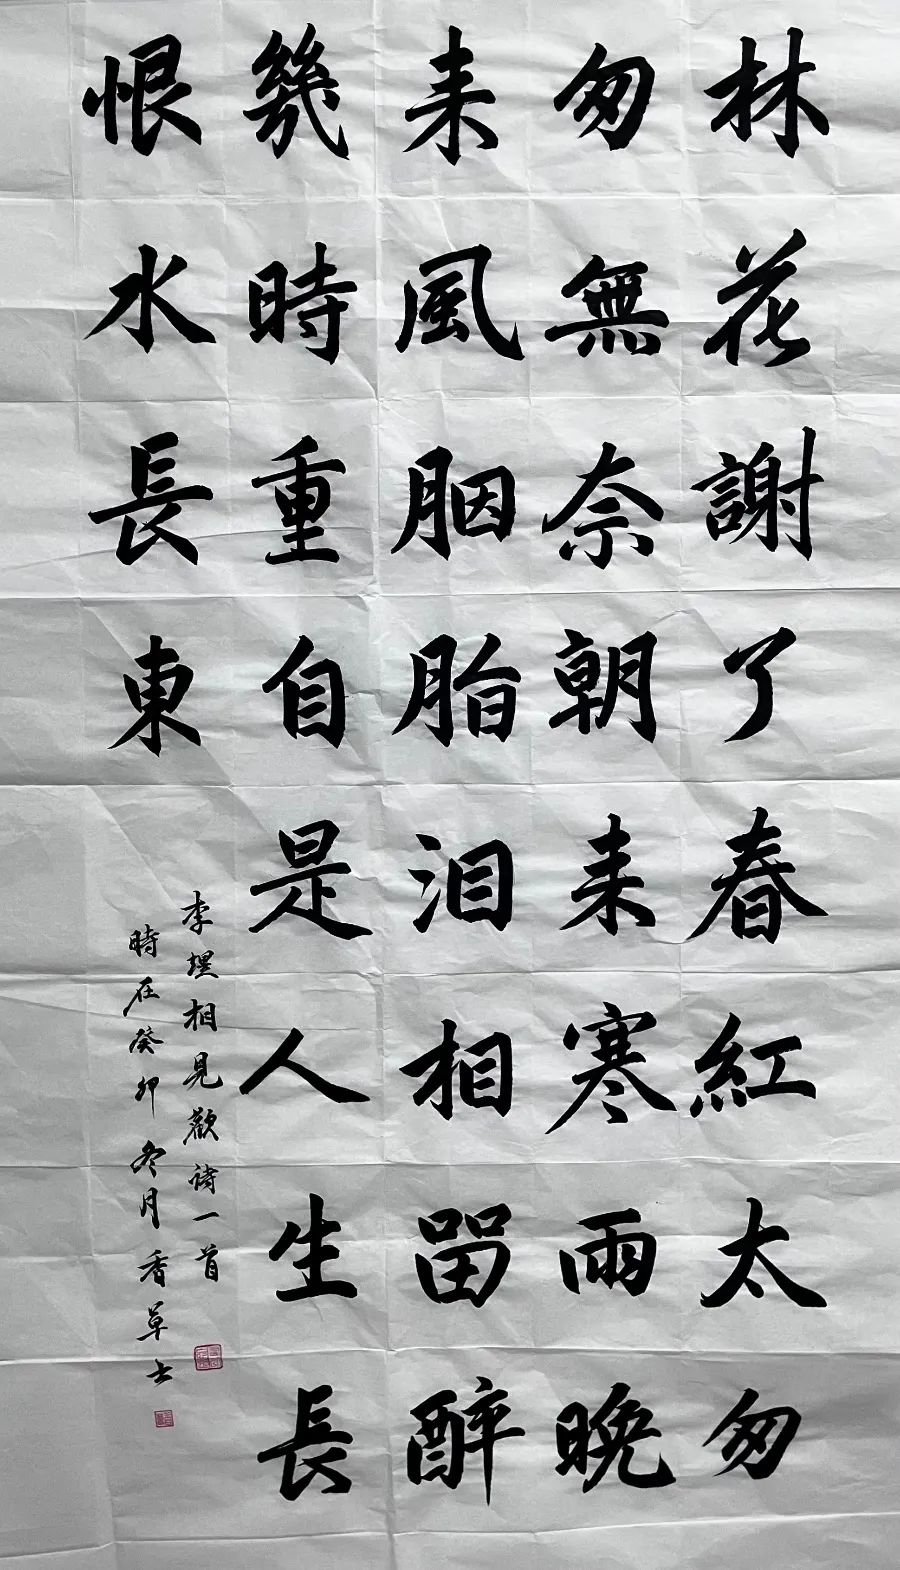 林花謝了春紅太匆
匆無奈朝来寒雨晚
来風胭脂泪相留醉
幾時重自是人生長
恨水長東
李煜相見歡诗一首
時在癸卯冬月香草士